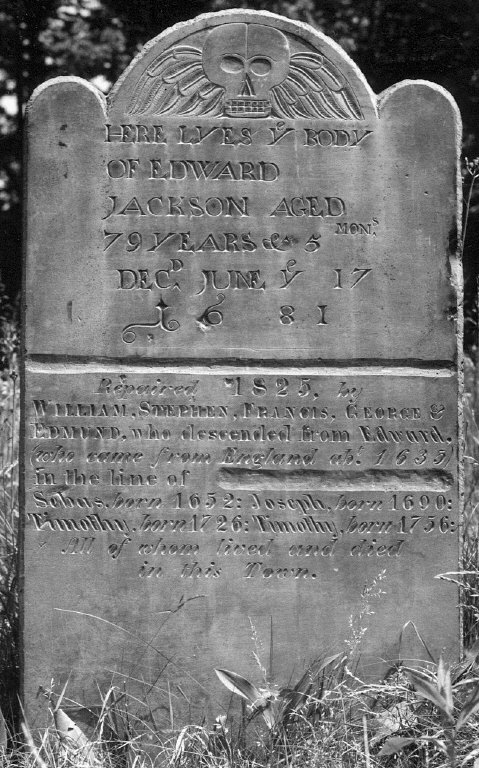 HERE LYES Yᵉ BODY
OF EDWARD
JACKSON AGED
79 YEARS & 5 MONˢ
DECᴰ. JUNE Yᵉ 17
1681
Repaired 1825, by
WILLIAM, STEPHEN, FRANCIS, GEORGE &
EDMUND, who descended from Edward,
(who came from England abᵗ. 1635)
in the line of
Sebas, born 1652: Joseph, born 1690:
Timothy, born 1726: Timothy, born 1756:
All of whom lived and died
in this Town.